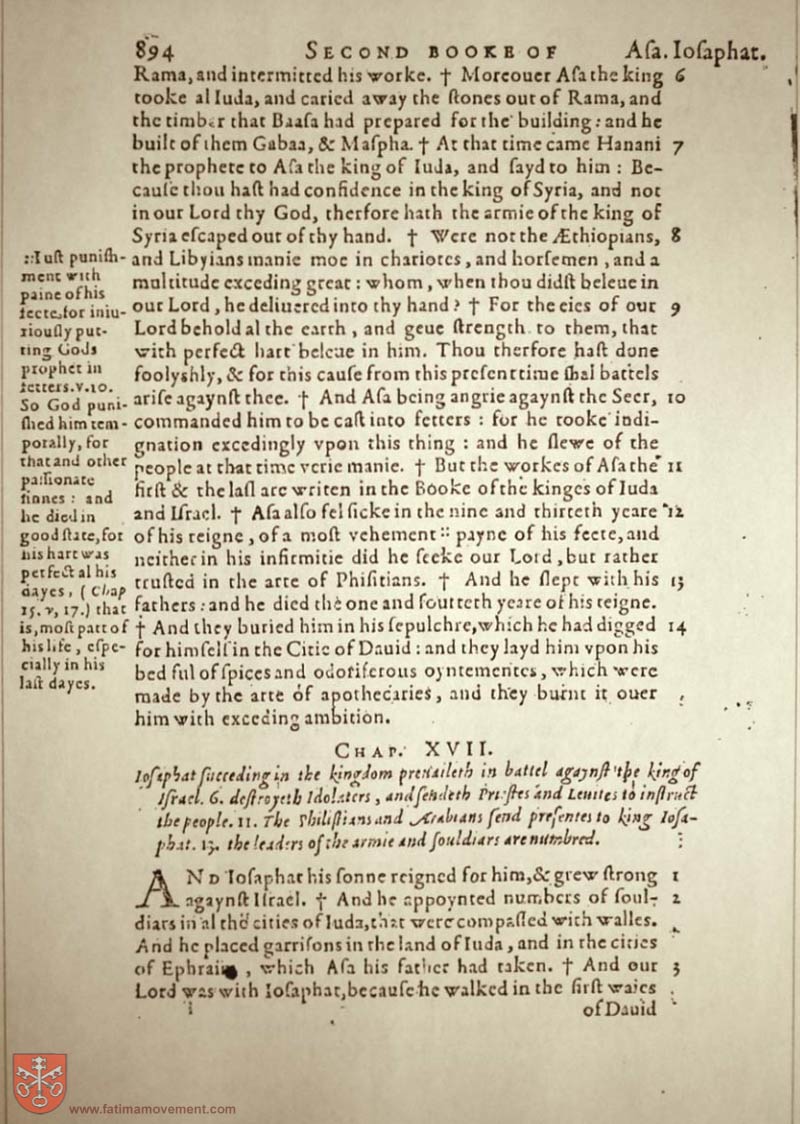 894 SECOND BOOKE OF Aſa. Ioſaphat.
Rama, and intermitted his worke. † Moreouer Aſa the king 6
tooke al Iuda, and caried away the ſtones out of Rama, and
the timber that Baaſa had prepared for the building: and he
built of them Gabaa, & Maſpha. † At that time came Hanani 7
the prophete to Aſa the king of Iuda, and ſayd to him: Be-
cauſe thou haſt had confidence in the king of Syria, and not
in our Lord thy God, therfore hath the armie of the king of
Syria eſcaped out of thy hand. † Were not the Æthiopians, 8
and Libyians manie moe in chariotes, and horſemen, and a
multitude exceding great: whom, when thou didſt beleue in
our Lord, he deliuered into thy hand? † For the eies of our 9
Lord behold al the earth, and geue ſtrength to them, that
with perfect hart beleue in him. Thou therfore haſt done
foolyshly, & for this cauſe from this preſent time ſhal battels
ariſe agaynſt thee. † And Aſa being angrie agaynſt the Seer, 10
commanded him to be caſt into fetters: for he tooke indi-
gnation excedingly vpon this thing: and he ſlewe of the
people at that time verie manie. † But the workes of Aſa the 11
firſt & the laſt are writen in the Booke of the kinges of Iuda
and Iſrael. † Aſa alſo fel ſicke in the nine and thirteth yeare 12
of his reigne, of a moſt vehement :: payne of his feete, and
neither in his infirmitie did he ſeeke our Lord, but rather
truſted in the arte of Phiſitians. † And he ſlept with his 13
fathers: and he died the one and fourteth yeare of his reigne.
† And they buried him in his ſepulchre, which he had digged 14
for himſelf in the Citie of Dauid: and they layd him vpon his
bed ful of ſpices and odoriferous oyntementes, which were
made by the arte of apothecaries, and they burnt it ouer
him with exceding ambition.
::Iuſt puniſh-
ment with
paine of his
feete, for iniu-
riouſly put-
ting Gods
prophet in
fetters. v. 10.
So God puni-
ſhed him tem-
porally, for
that and other
paſſionate
ſinnes: and
he died in
good ſtate, for
his hart was
perfect al his
dayes, (Chap
15. v, 17.) that
is, moſt part of
his life, eſpe-
cially in his
laſt dayes.
CHAP. XVII.
Ioſaphat ſucceding in the kingdom preuaileth in battel agaynſt the king of
Iſrael. 6. deſtroyeth Idolaters, and ſendeth Prieſtes and Leuites to inſtruct
the people. 11. The Philiſtians and Arabians ſend preſentes to king Ioſa-
phat. 13. the leaders of the armie and ſouldiars are numbred.
AND Ioſaphat his ſonne reigned for him, & grew ſtrong 1
agaynſt Iſrael. † And he appoynted numbers of ſoul- 2
diars in al the cities of Iuda, that were compaſſed with walles.
And he placed garriſons in the land of Iuda, and in the cities
of Ephraim, which Aſa his father had taken. † And our 3
Lord was with Ioſaphat, becauſe he walked in the firſt waies
of Dauid
www.fatimamovement.com